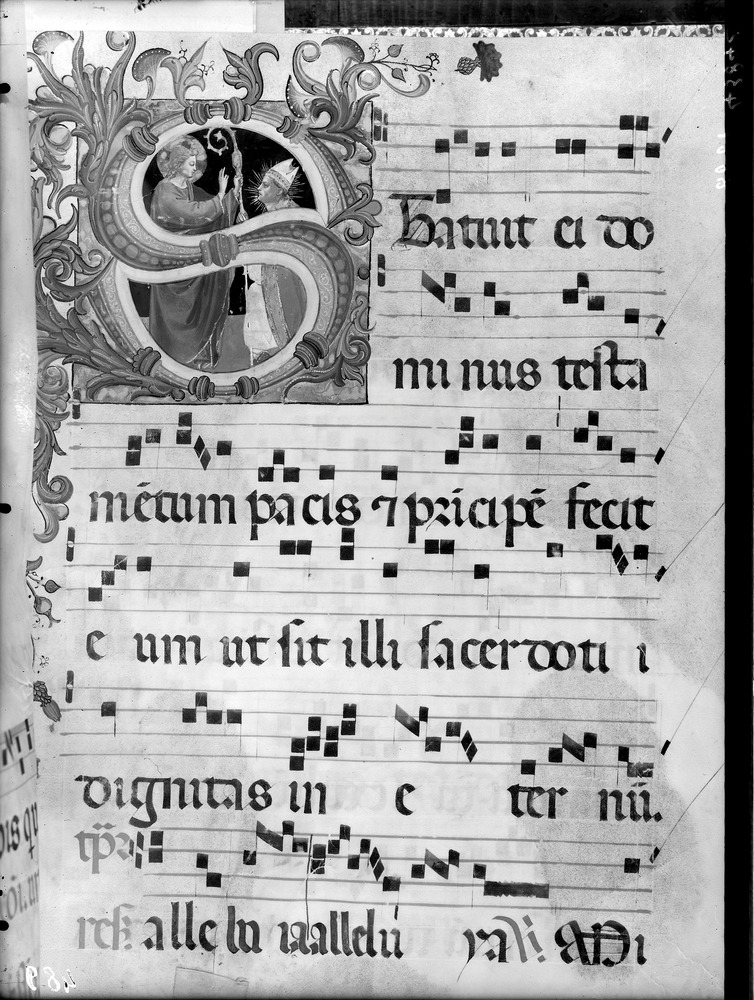 Statuit ei do
mi nus testa
mētum pacis ⁊ pricipē fecit
e um ut sit illi sacerdoti i
dignitas in e ter nū.
tp̄r
resr̄ alle lu ia allelu ya ℣ Mi
489